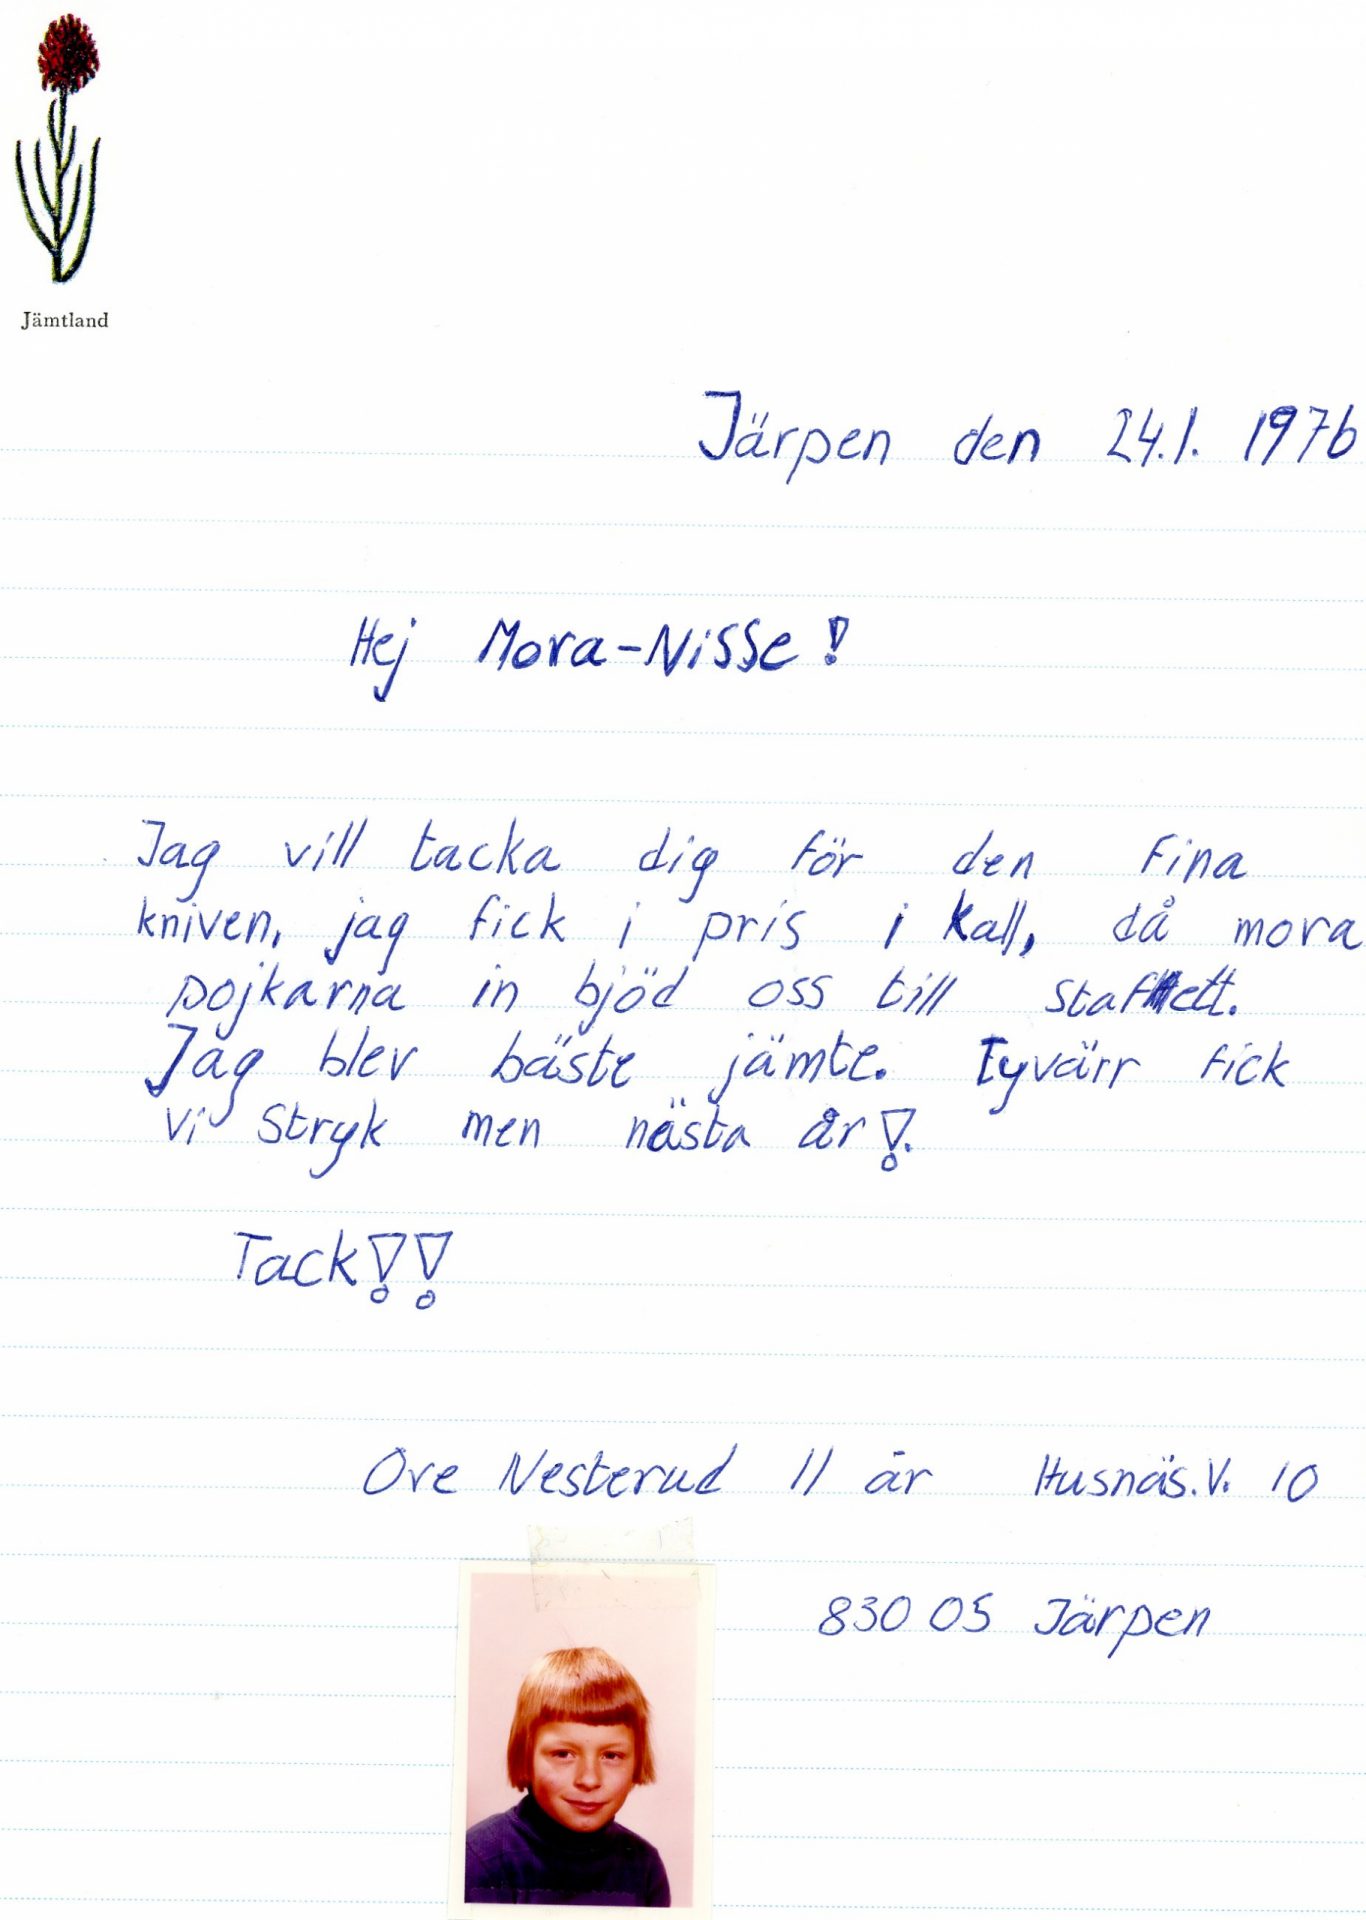 Jämtland
Järpen den 24.1. 1976
Hej Mora-Nisse!
Jag vill tacka dig för den fina
kniven, jag fick i pris i Kall, då mora
pojkarna in bjöd oss till stafett.
Jag blev bäste jämte. Tyvärr fick
vi stryk men nästa år!.
Tack!!
Ove Nesterud 11 år Husnäs.V. 10
830 05 Järpen